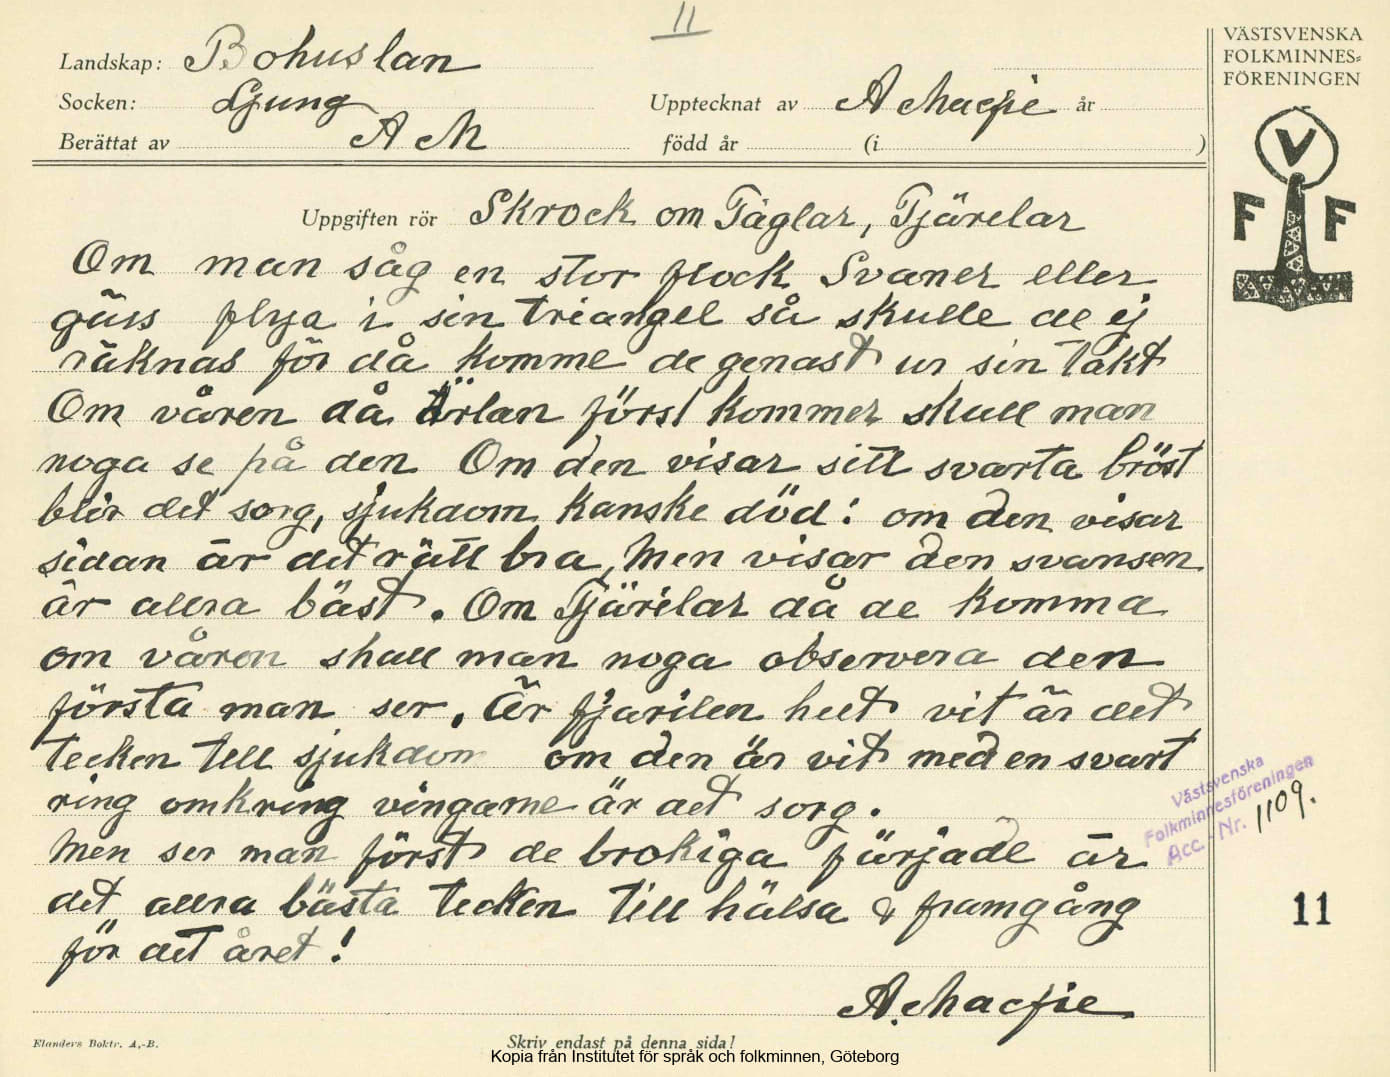 11
VÄSTSVENSKA
FOLKMINNES=
FÖRENINGEN
Landskap: Bohuslan
Socken: Ljung
Upptecknat av A Macfie år
Berättat av A M född år (i )
V
F F
Uppgiften rör Skrock om Fåglar, Fjärelar
Om man såg en stor flock Svaner eller
gäss flyga i sin triangel så skulle de ej
räknas för då komme de genast ur sin takt
Om våren då Ärlan först kommer skull man
noga se på den Om den visar sitt svarta bröst
blir det sorg, sjukdom kanske död: om den visar
sidan är det rätt bra, Men visar den svansen
är allra bäst. Om Fjärilar då de komma
om våren skall man noga observera den
första man ser. Är fjarilen helt vit är det
tecken tell sjukdom om den är vit med en svart
ring omkring vingarne är det sorg.
Men ser man först de brokiga färjade är
det allra bästa tecken till hälsa & framgång
för det året!
A. Macfie
Västsvenska
Folkminnesföreningen
Acc. - Nr. 1109.
11
Elanders Boktr. A.-B.
Skriv endast på denna sida!
Kopia från Institutet för språk och folkminnen, Göteborg